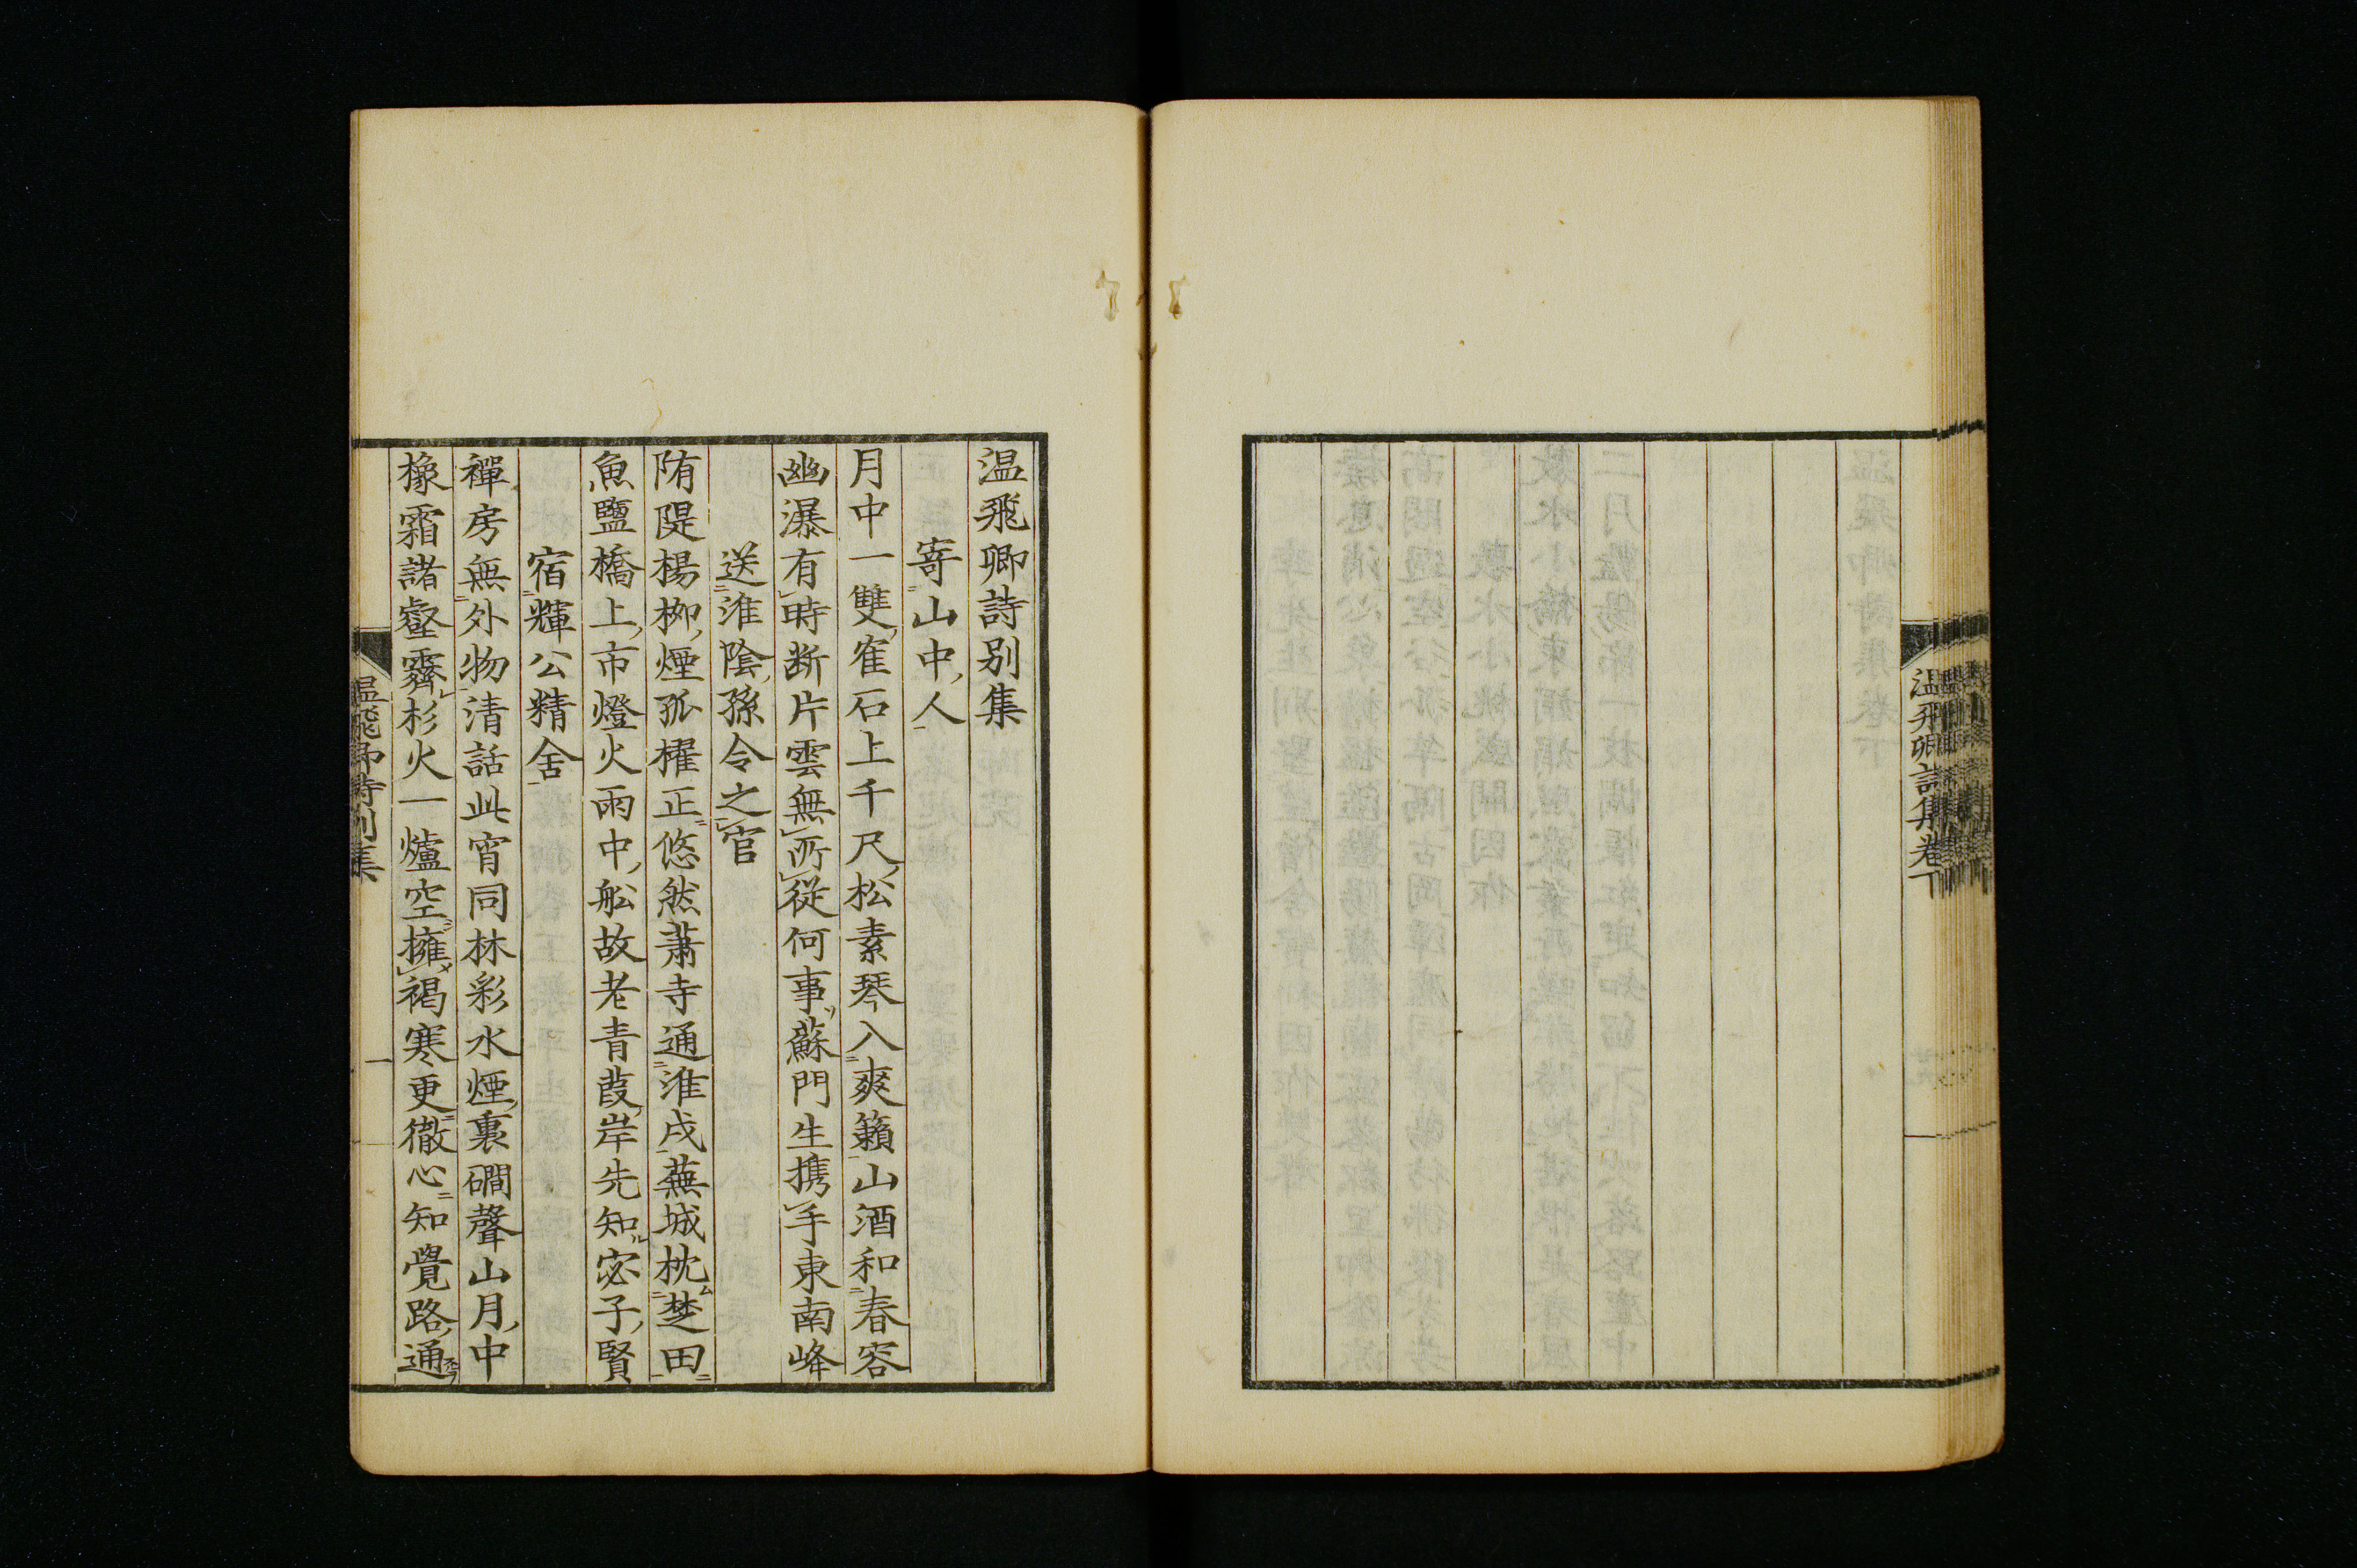 温飛卿詩集卷下
温飛卿詩别集
寄山中人
月中一雙隺石上千尺松素琴入爽籟山酒和春容
幽瀑有時断片雲無所從何事蘇門生携手東南峰
送淮陰孫令之官
隋隄楊柳煙孤櫂正悠然蕭寺通淮戍蕪城枕楚田
魚鹽橋上市燈火雨中舩故老青葭岸先知宓子賢
宿輝公精舍
禪房無外物清話此宵同林彩水煙裏磵聲山月中
橡霜諸壑霽杉火一爐空擁褐寒更徹心知覺路通
温飛卿詩别集
一